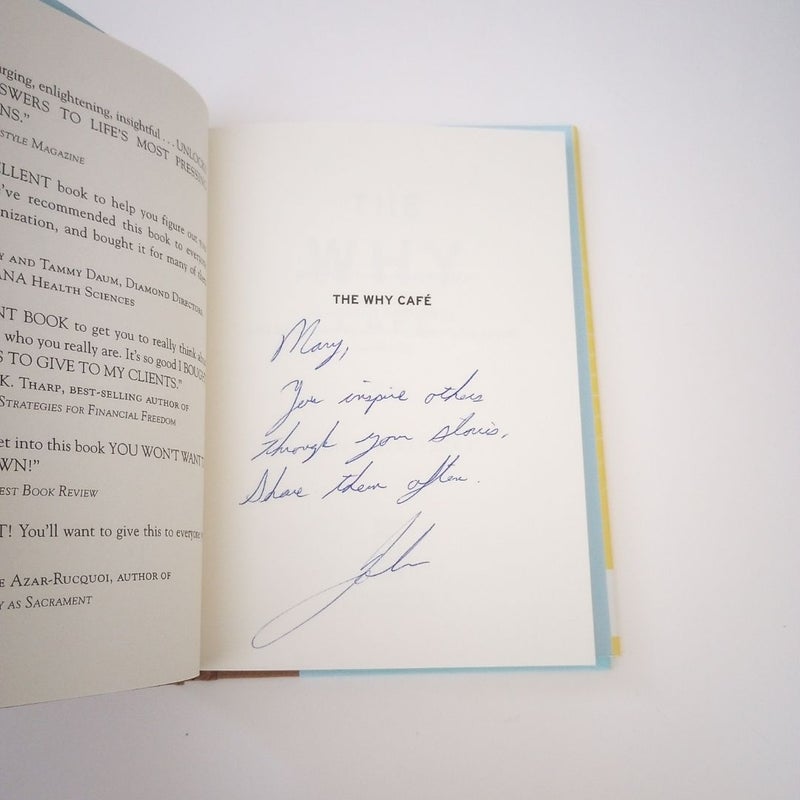 rging, enlightening, insightful . . . UNLOCK
SWERS TO LIFE'S MOST PRESSING
NS."
STYLE MAGAZINE
LLENT book to help you figure out
've recommended this book to everyone
nization, and bought it for many of them
Y AND TAMMY DAUM, DIAMOND DIRECTORS,
ANA HEALTH SCIENCES
NT BOOK to get you to really think
who you really are. It's so good I BOUGHT
S TO GIVE TO MY CLIENTS."
K. THARP, BEST-SELLING AUTHOR OF
STRATEGIES FOR FINANCIAL FREEDOM
et into this book YOU WON'T WANT
WN!"
EST BOOK REVIEW
T! You'll want to give this to everyone
E AZAR-RUCQUOI, AUTHOR OF
Y AS SACRAMENT
THE WHY CAFÉ
Mary,
You inspire others
through your stories.
Share them often.
John